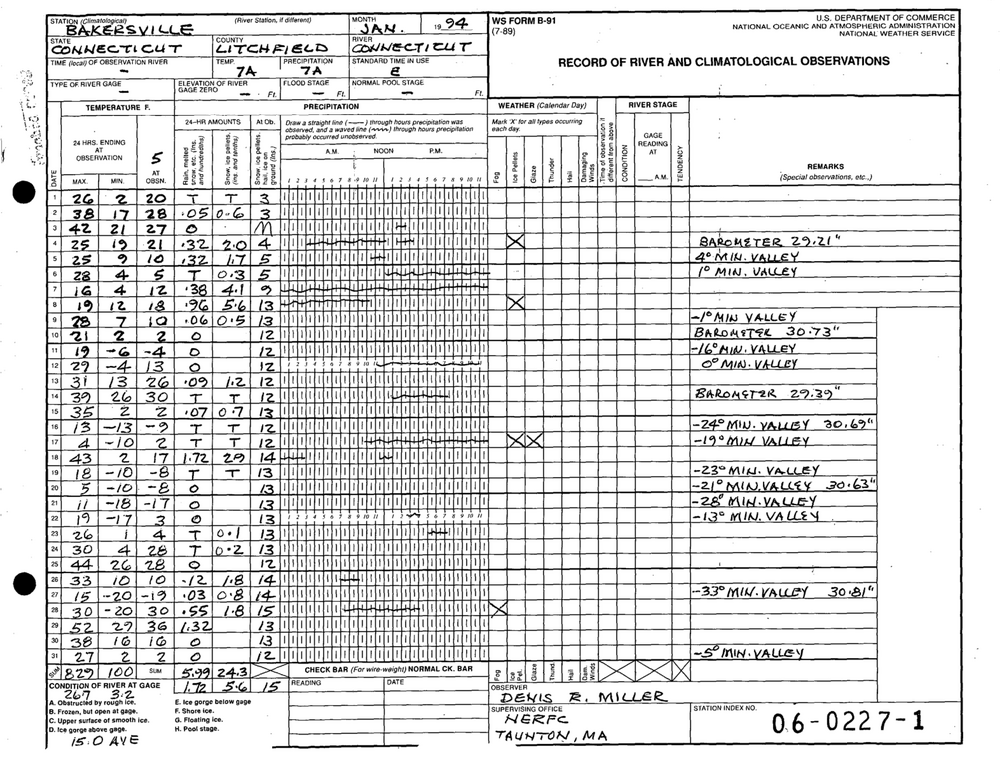 STATION (Climatological) (River Station, if different) MONTH WS FORM B-91 U.S. DEPARTMENT OF COMMERCE
BAKERSVILLE JAN. 1994 (7-89) NATIONAL OCEANIC AND ATMOSPHERIC ADMINISTRATION
STATE COUNTY RIVER NATIONAL WEATHER SERVICE
CONNECTICUT LITCHFIELD CONNECTICUT
TIME (local) OF OBSERVATION RIVER TEMP. PRECIPITATION STANDARD TIME IN USE
- 7A 7A E RECORD OF RIVER AND CLIMATOLOGICAL OBSERVATIONS
TYPE OF RIVER GAGE ELEVATION OF RIVER GAGE ZERO FLOOD STAGE NORMAL POOL STAGE
- - Ft. - Ft. - Ft.
TEMPERATURE F. PRECIPITATION WEATHER (Calendar Day) RIVER STAGE
24 HRS. ENDING AT OBSERVATION 5 AT OBSN. 24-HR AMOUNTS At Ob.
Draw a straight line (——) through hours precipitation was observed, and a waved line (~~~) through hours precipitation probably occurred unobserved.
Mark 'X' for all types occurring each day.
A.M. NOON P.M.
DATE MAX. MIN. Rain, melted snow, etc. (Ins. and hundredths) Snow, ice pellets, (ins. and tenths) Snow, ice pellets, hail, ice on ground (Ins.)
1 2 3 4 5 6 7 8 9 10 11 1 2 3 4 5 6 7 8 9 10 11
Fog Ice Pellets Glaze Thunder Hail Damaging Winds Time of observation if different from above CONDITION GAGE READING AT ___ A.M. TENDENCY REMARKS (Special observations, etc.,)
1 26 2 20 T T 3
2 38 17 28 .05 0.6 3
3 42 21 27 0 M
4 25 19 21 .32 2.0 4 X BAROMETER 29.21"
5 25 9 10 .32 1.7 5 4° MIN. VALLEY
6 28 4 5 T 0.3 5 1° MIN. VALLEY
7 16 4 12 .38 4.1 9
8 19 12 18 .96 5.6 13 X
9 28 7 10 .06 0.5 13 -1° MIN VALLEY
10 21 2 2 0 12 BAROMETER 30.73"
11 19 -6 -4 0 12 -16° MIN. VALLEY
12 29 -4 13 0 12 0° MIN. VALLEY
13 31 13 26 .09 1.2 12
14 39 26 30 T T 12 BAROMETER 29.39"
15 35 2 2 .07 0.7 13
16 13 -13 -9 T T 12 -24° MIN. VALLEY 30.69"
17 4 -10 2 T T 12 X X -19° MIN VALLEY
18 43 2 17 1.72 29 14
19 18 -10 -8 T T 13 -23° MIN. VALLEY
20 5 -10 -8 0 13 -21° MIN. VALLEY 30.63"
21 11 -18 -17 0 13 -28° MIN. VALLEY
22 19 -17 3 0 13 -13° MIN. VALLEY
23 26 1 4 T 0.1 13
24 30 4 28 T 0.2 13
25 44 26 28 0 12
26 33 10 10 .12 1.8 14
27 15 -20 -19 .03 0.8 14 -33° MIN. VALLEY 30.81"
28 30 -20 30 .55 1.8 15 X
29 52 29 36 1.32 13
30 38 16 16 0 13
31 27 2 2 0 12 -5° MIN. VALLEY
SUM 829 100 SUM 5.99 24.3 CHECK BAR (For wire-weight) NORMAL CK. BAR Fog Ice Pel. Glaze Thunder Hail Damag. Winds
CONDITION OF RIVER AT GAGE 1.72 5.6 15 READING DATE
26.7 3.2
A. Obstructed by rough ice. E. Ice gorge below gage
B. Frozen, but open at gage. F. Shore ice.
C. Upper surface of smooth ice. G. Floating ice.
D. Ice gorge above gage. H. Pool stage.
15.0 AVE
OBSERVER
DENIS R. MILLER
SUPERVISING OFFICE STATION INDEX NO.
NERFC 06-0227-1
TAUNTON, MA